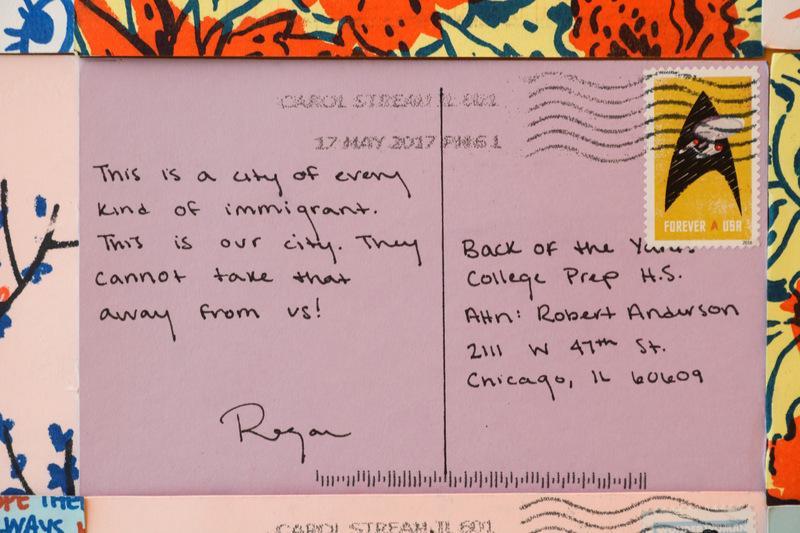 CAROL STREAM IL 601
17 MAY 2017 PM 6 L
This is a city of every
kind of immigrant.
This is our city. They
cannot take that
away from us!
Regan
FOREVER USA
2016
Back of the Yards
College Prep H.S.
Attn: Robert Anderson
2111 W 47th St.
Chicago, IL 60609
WAYS
CAROL STREAM IL 601